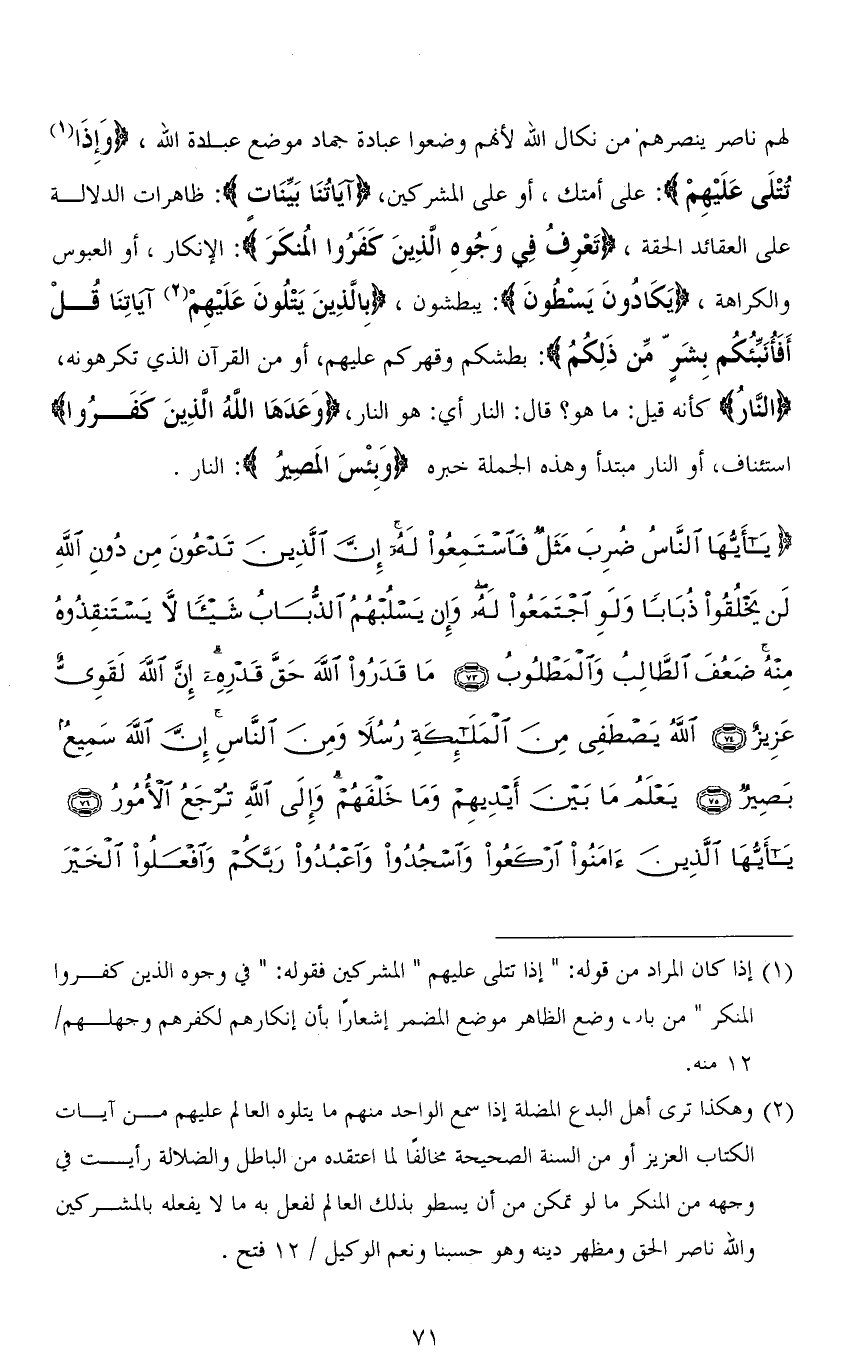 لهم ناصر ينصرهم من نكال الله لأنهم وضعوا عبادة جماد موضع عبادة الله ، ﴿وَإِذَا(١)
تُتْلَى عَلَيْهِمْ ﴾: على أمتك ، أو على المشركين، ﴿آيَاتُنَا بَيِّنَاتٍ ﴾: ظاهرات الدلالة
على العقائد الحقة ، ﴿تَعْرِفُ فِي وَجُوهِ الَّذِينَ كَفَرُوا الْمُنكَرَ ﴾: الإنكار ، أو العبوس
والكراهة ، ﴿يَكَادُونَ يَسْطُونَ ﴾: يبطشون ، ﴿بِالَّذِينَ يَتْلُونَ عَلَيْهِمْ(٢) آيَاتِنَا قُلْ
أَفَأُنَبِّئُكُم بِشَرٍّ مِّن ذَلِكُمُ ﴾: بطشكم وقهركم عليهم، أو من القرآن الذي تكرهونه،
﴿النَّارُ﴾ كأنه قيل: ما هو؟ قال: النار أي: هو النار، ﴿وَعَدَهَا اللَّهُ الَّذِينَ كَفَرُوا﴾
استئناف، أو النار مبتدأ وهذه الجملة خبره ﴿وَبِئْسَ الْمَصِيرُ ﴾: النار .
﴿ يَـٰٓأَيُّهَا ٱلنَّاسُ ضُرِبَ مَثَلٌ فَٱسْتَمِعُوا۟ لَهُۥٓ ۚ إِنَّ ٱلَّذِينَ تَدْعُونَ مِن دُونِ ٱللَّهِ
لَن يَخْلُقُوا۟ ذُبَابًا وَلَوِ ٱجْتَمَعُوا۟ لَهُۥ ۖ وَإِن يَسْلُبْهُمُ ٱلذُّبَابُ شَيْـًٔا لَّا يَسْتَنقِذُوهُ
مِنْهُ ۚ ضَعُفَ ٱلطَّالِبُ وَٱلْمَطْلُوبُ ٧٣ مَا قَدَرُوا۟ ٱللَّهَ حَقَّ قَدْرِهِۦٓ ۗ إِنَّ ٱللَّهَ لَقَوِىٌّ
عَزِيزٌ ٧٤ ٱللَّهُ يَصْطَفِى مِنَ ٱلْمَلَـٰٓئِكَةِ رُسُلًا وَمِنَ ٱلنَّاسِ ۚ إِنَّ ٱللَّهَ سَمِيعٌۢ
بَصِيرٌ ٧٥ يَعْلَمُ مَا بَيْنَ أَيْدِيهِمْ وَمَا خَلْفَهُمْ ۗ وَإِلَى ٱللَّهِ تُرْجَعُ ٱلْأُمُورُ ٧٦
يَـٰٓأَيُّهَا ٱلَّذِينَ ءَامَنُوا۟ ٱرْكَعُوا۟ وَٱسْجُدُوا۟ وَٱعْبُدُوا۟ رَبَّكُمْ وَٱفْعَلُوا۟ ٱلْخَيْرَ
(١) إذا كان المراد من قوله: " إذا تتلى عليهم " المشركين فقوله: " في وجوه الذين كفروا
المنكر " من باب وضع الظاهر موضع المضمر إشعارًا بأن إنكارهم لكفرهم وجهلهم/
١٢ منه.
(٢) وهكذا ترى أهل البدع المضلة إذا سمع الواحد منهم ما يتلوه العالم عليهم من آيات
الكتاب العزيز أو من السنة الصحيحة مخالفًا لما اعتقده من الباطل والضلالة رأيت في
وجهه من المنكر ما لو تمكن من أن يسطو بذلك العالم لفعل به ما لا يفعله بالمشركين
والله ناصر الحق ومظهر دينه وهو حسبنا ونعم الوكيل / ١٢ فتح .
٧١